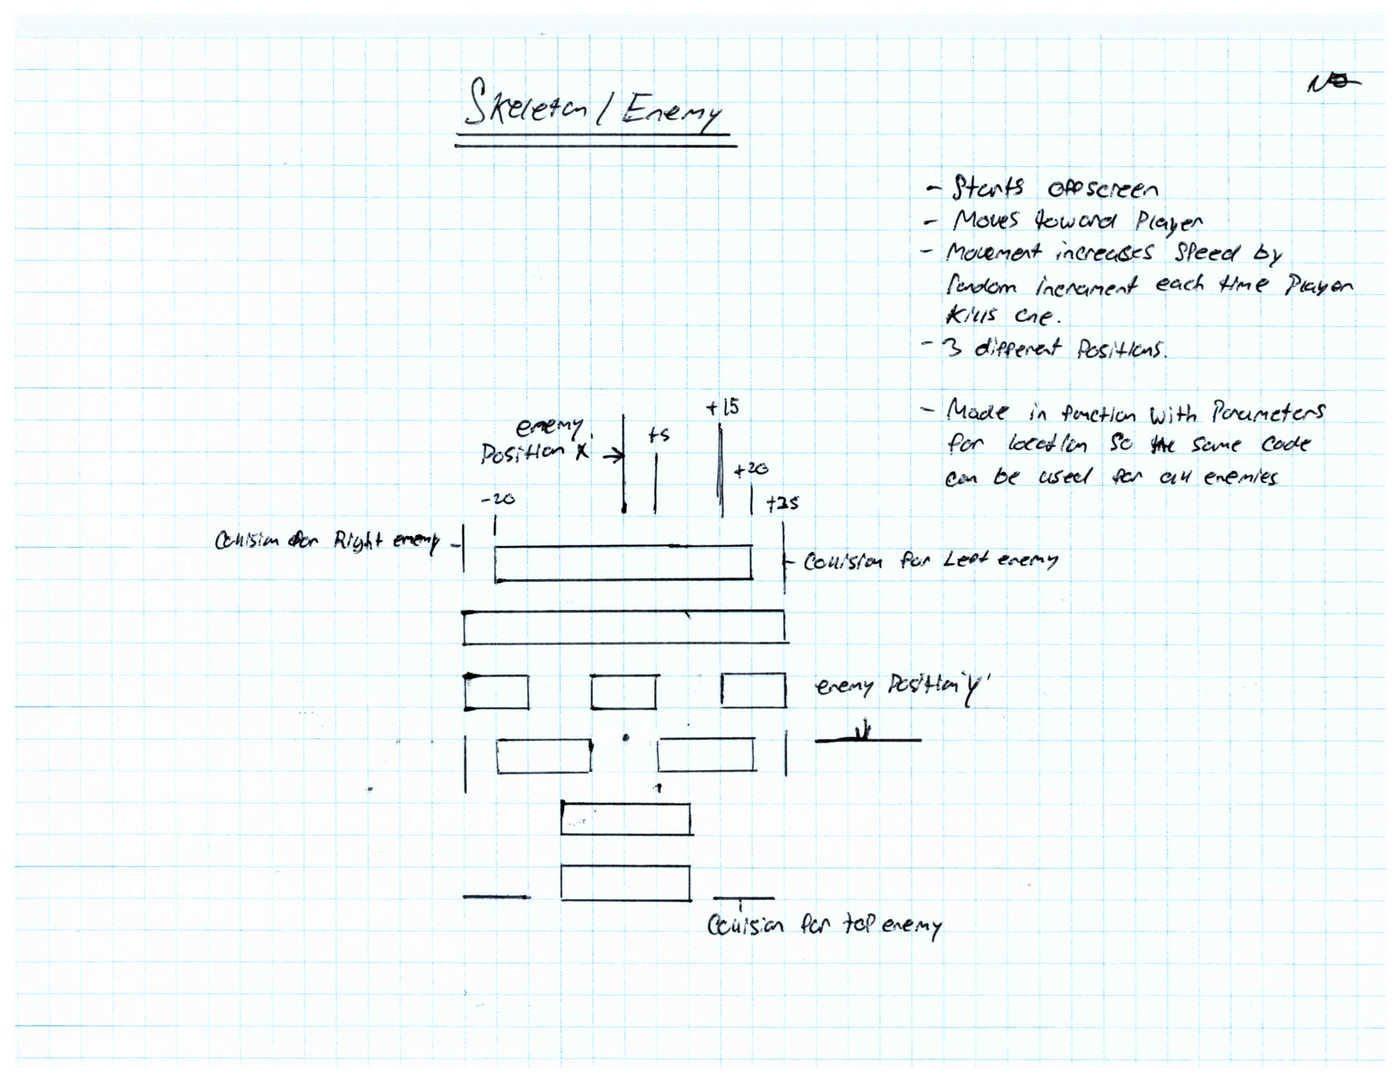 Skeleton / Enemy
- Starts offscreen
- Moves toward Player
- Movement increases speed by
random increment each time Player
kills one.
- 3 different Positions.
- Made in function with Parameters
for location so the same code
can be used for all enemies
enemy
Position X →
+5
+15
+20
+25
-20
Collision for Right enemy -
- Collision for Left enemy
enemy Position 'y'
Collision for top enemy